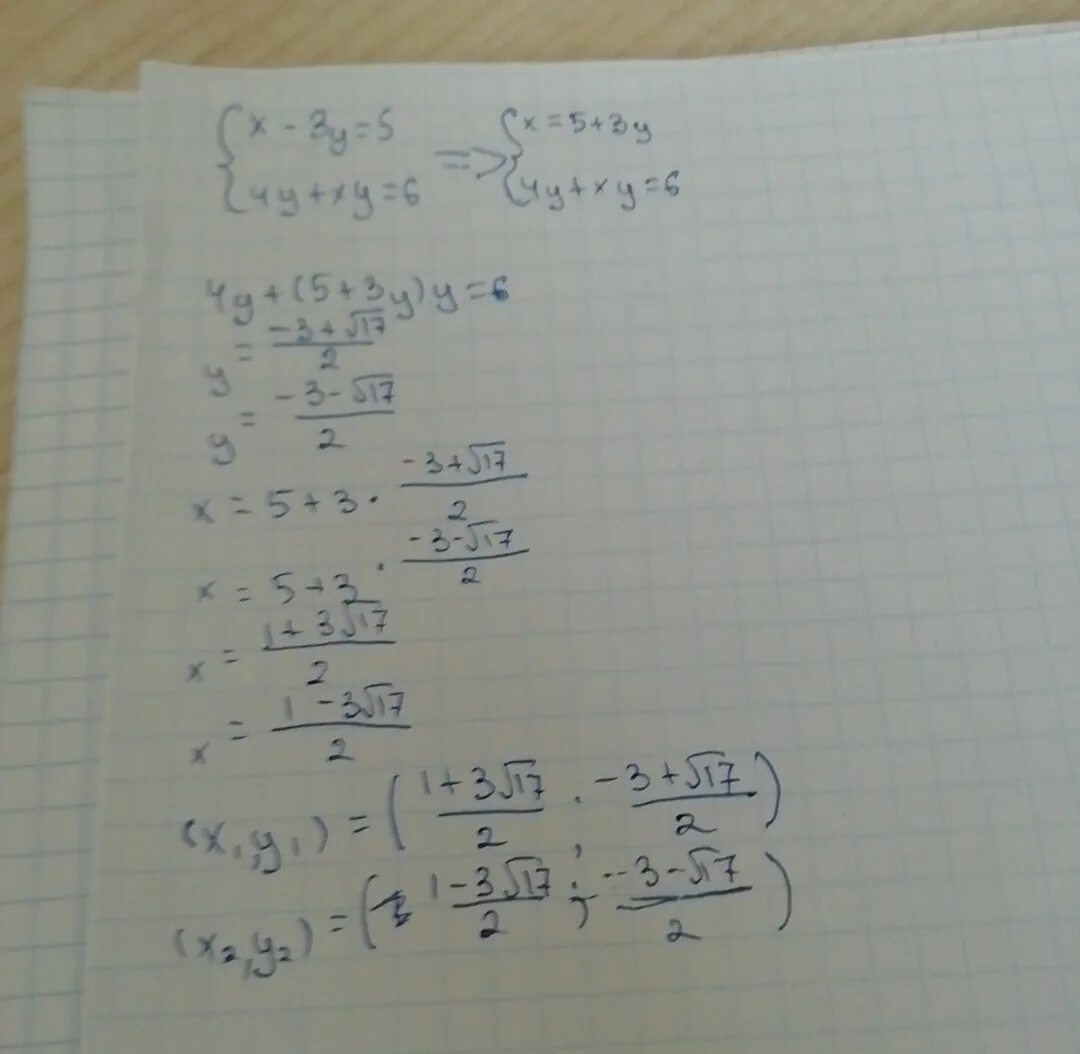 {x - 3y = 5 => {x = 5 + 3y
{4y + xy = 6 {4y + xy = 6
4y + (5 + 3y)y = 6
y = (-3 + √17)/2
y = (-3 - √17)/2
x = 5 + 3 · (-3 + √17)/2
x = 5 + 3 · (-3 - √17)/2
x = (1 + 3√17)/2
x = (1 - 3√17)/2
(x₁, y₁) = ((1 + 3√17)/2 ; (-3 + √17)/2)
(x₂, y₂) = ((1 - 3√17)/2 ; (-3 - √17)/2)